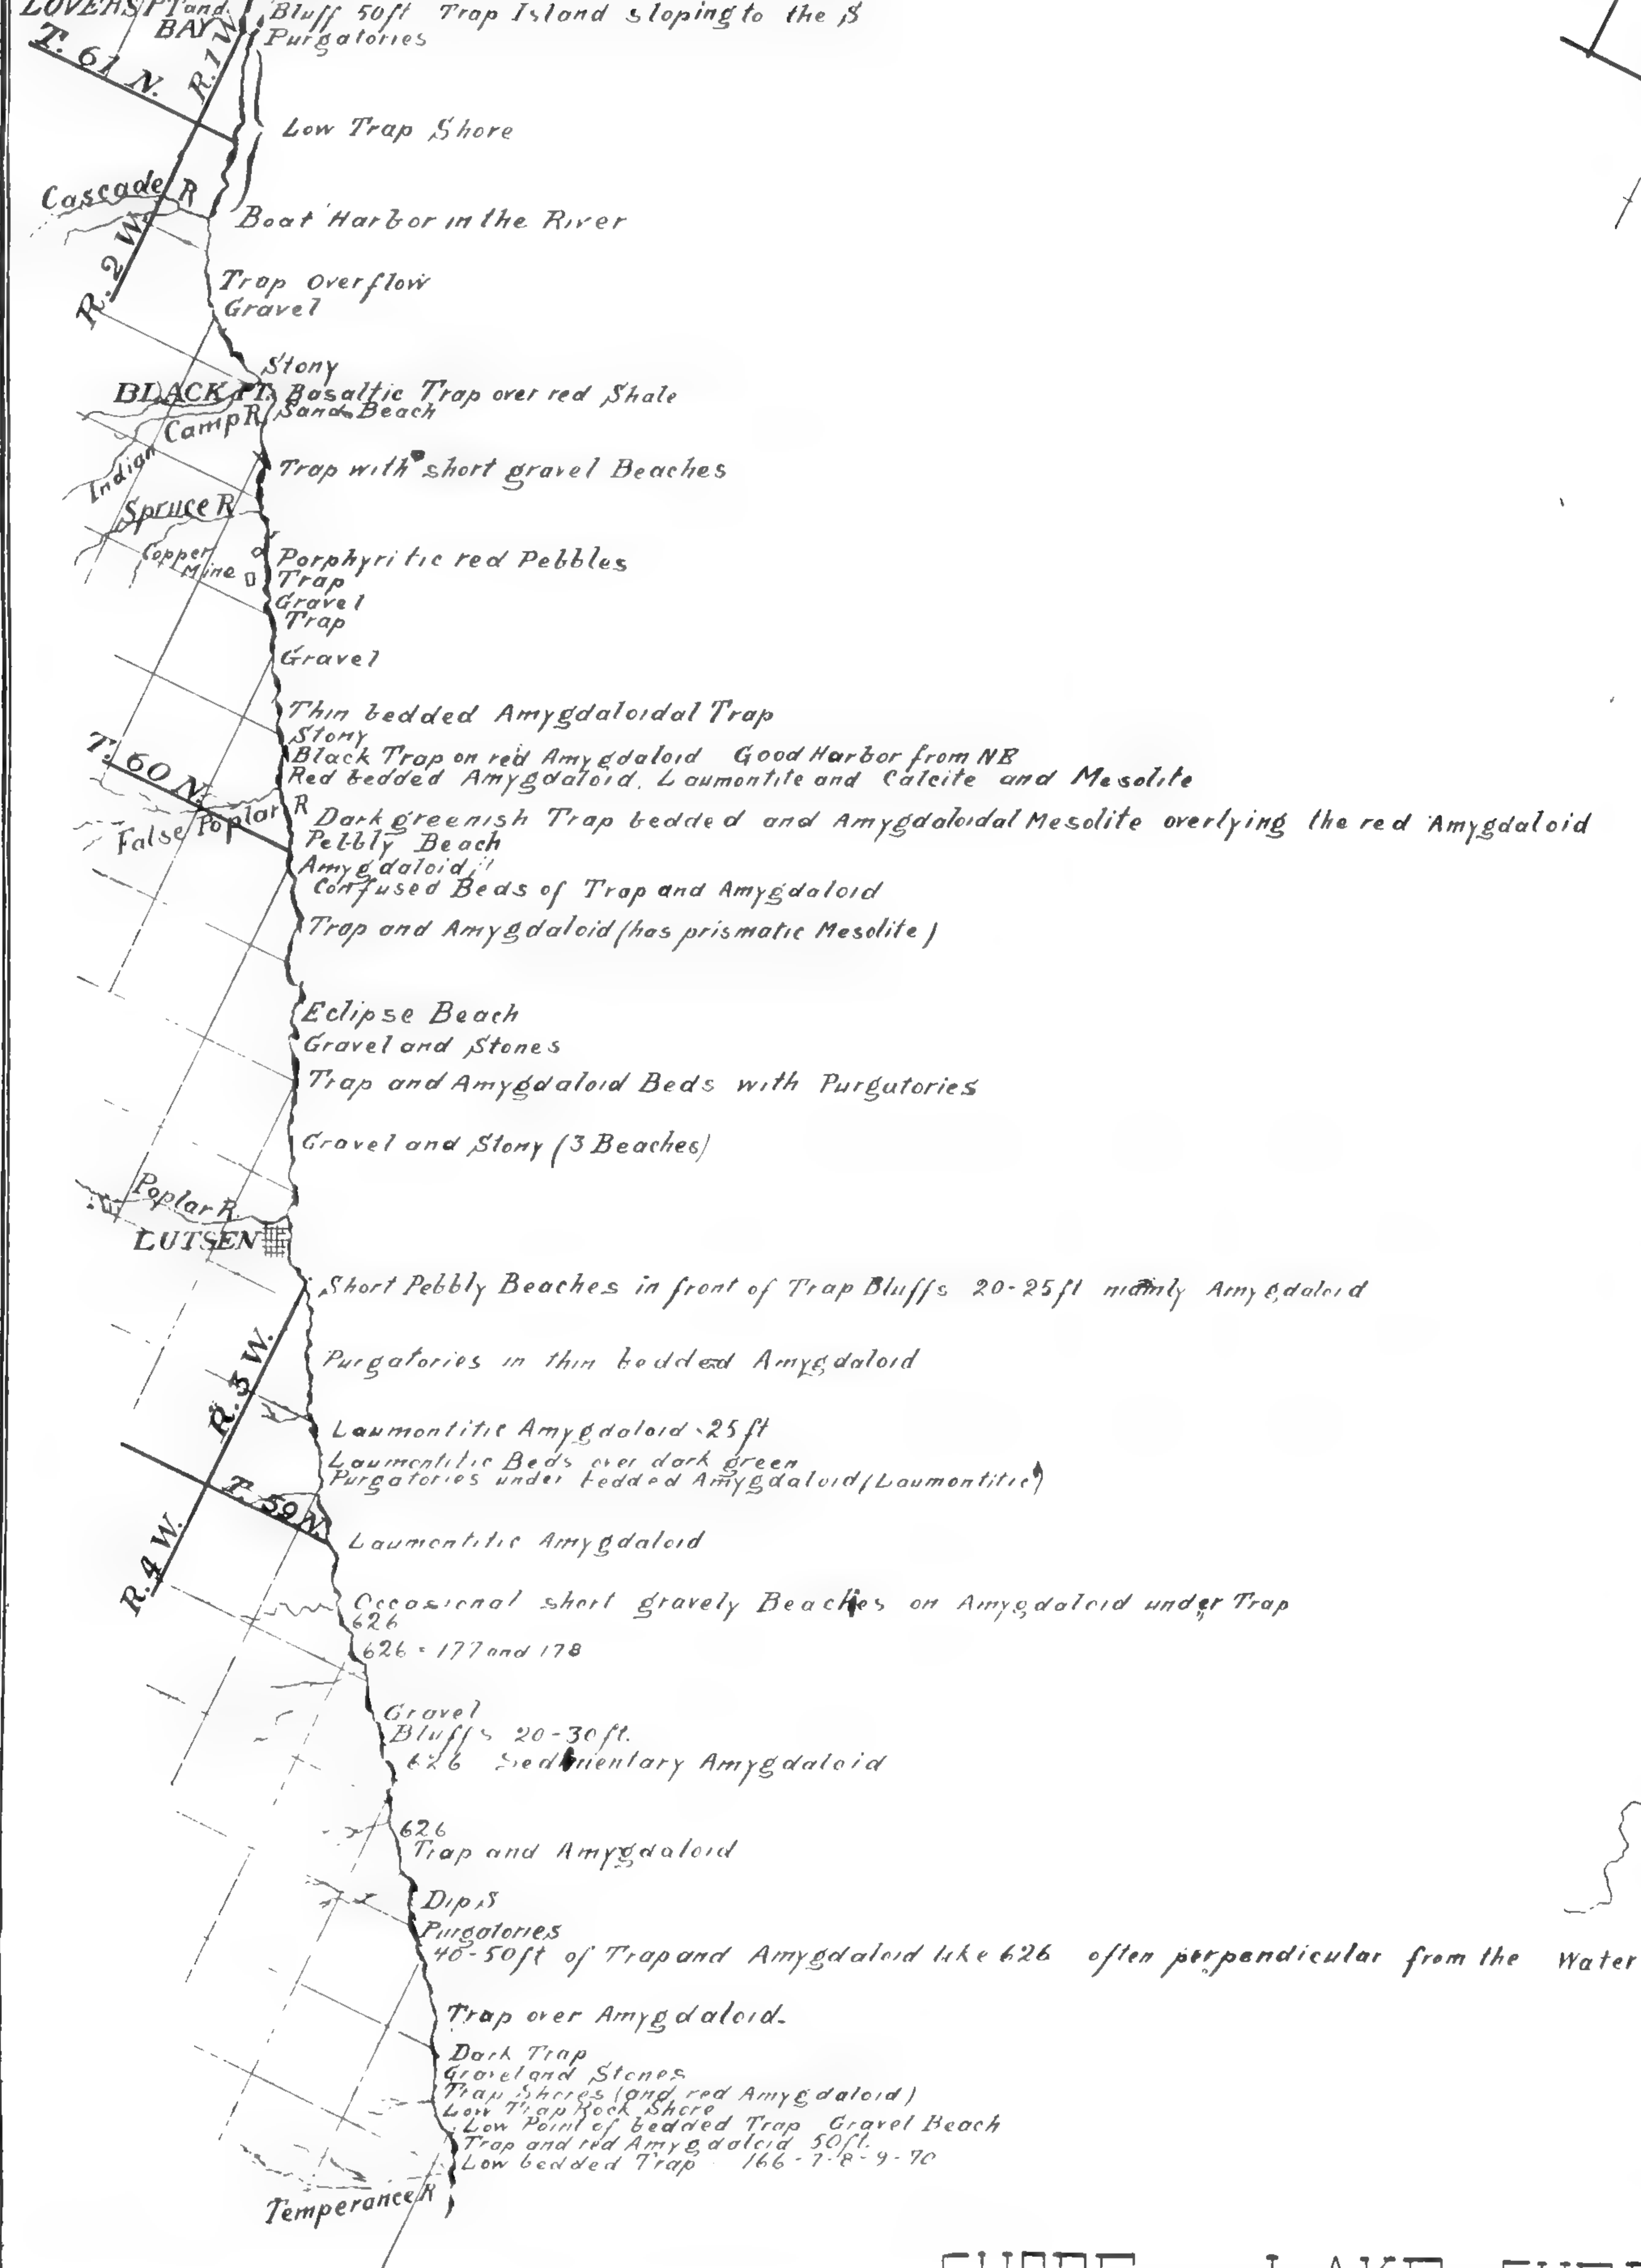 LOVERS PT and BAY
Bluff 50ft Trap Island sloping to the S
Purgatories
T. 61 N.
R. 1 W.
Low Trap Shore
Cascade R
Boat Harbor in the River
R. 2 W.
Trap Overflow
Gravel
Stony
BLACK PT. Basaltic Trap over red Shale
Sand Beach
Indian Camp R
Trap with short gravel Beaches
Spruce R
Copper Mine
Porphyritic red Pebbles
Trap
Gravel
Trap
Gravel
Thin bedded Amygdaloidal Trap
Stony
Black Trap on red Amygdaloid Good Harbor from NE
Red bedded Amygdaloid. Laumontite and Calcite and Mesolite
T. 60 N.
False Poplar R
Dark greenish Trap bedded and Amygdaloidal Mesolite overlying the red Amygdaloid
Pebbly Beach
Amygdaloid
Confused Beds of Trap and Amygdaloid
Trap and Amygdaloid (has prismatic Mesolite)
Eclipse Beach
Gravel and Stones
Trap and Amygdaloid Beds with Purgatories
Gravel and Stony (3 Beaches)
Poplar R.
LUTSEN
Short Pebbly Beaches in front of Trap Bluffs 20-25ft mainly Amygdaloid
Purgatories in thin bedded Amygdaloid
R. 3 W.
Laumontitic Amygdaloid 25ft
Laumontitic Beds over dark green
Purgatories under bedded Amygdaloid (Laumontitic)
T. 59 N.
Laumontitic Amygdaloid
R. 4 W.
Occasional short gravely Beaches on Amygdaloid under Trap
626
626 = 177 and 178
Gravel
Bluffs 20-30ft.
626 Sedimentary Amygdaloid
626
Trap and Amygdaloid
Dip S
Purgatories
40-50ft of Trap and Amygdaloid like 626 often perpendicular from the Water
Trap over Amygdaloid
Dark Trap
Gravel and Stones
Trap Shores (and red Amygdaloid)
Low Trap Rock Shore
Low Point of bedded Trap Gravel Beach
Trap and red Amygdaloid 50ft.
Low bedded Trap 166-7-8-9-70
Temperance R